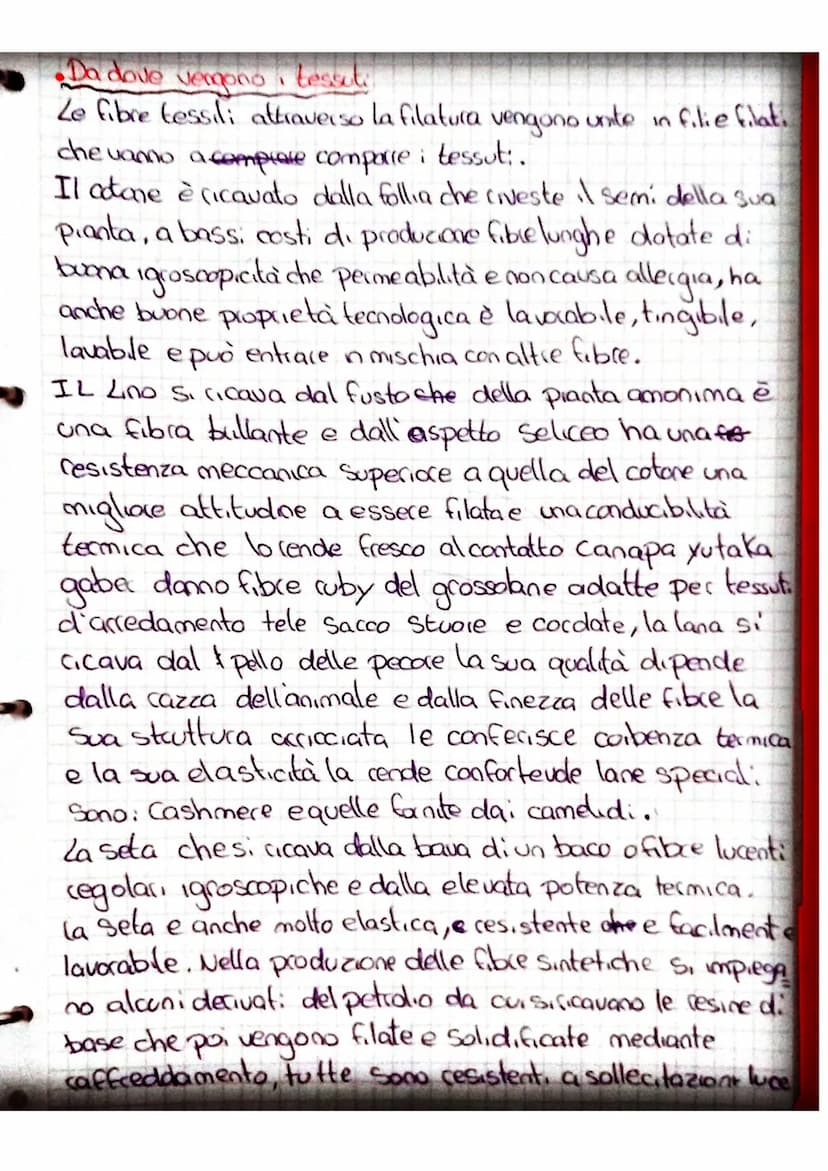 • Da dove vengono i tessuti
Le fibre tessili attraverso la filatura vengono unite in fili e filati
che vanno a comprore comporre i tessuti.
Il cotone è ricavato dalla follia che riveste il semi della sua
pianta, a bassi costi di produzione fibre lunghe dotate di
buona igroscopicità che permeabilità e non causa allergia, ha
anche buone proprietà tecnologica è lavorabile, tingibile,
lavabile e può entrare n mischia con altre fibre.
IL Lino si ricava dal fusto che della pianta amonima è
una fibra brillante e dall'aspetto seliceo ha una
resistenza meccanica superiore a quella del cotone una
migliore attitudine a essere filata e una conducibilità
termica che lo rende fresco al contatto canapa yutaka
gaber danno fibre ruby del grossolane adatte per tessuti
d'arredamento tele sacco stuoie e cordate, la lana si
ricava dal pello delle pecore la sua qualità dipende
dalla razza dell'animale e dalla finezza delle fibre la
sua struttura arricciata le conferisce coibenza termica
e la sua elasticità la rende confortevole lane speciali
sono: Cashmere e quelle fornite dai camelidi.
La seta che si ricava dalla bava di un baco o fibre lucenti
regolari igroscopiche e dalla elevata potenza termica.
la seta e anche molto elastica, e resistente che e facilmente
lavorabile. Nella produzione delle fibre sintetiche si impiega
no alcuni derivati del petrolio da cui si ricavano le resine di
base che poi vengono filate e solidificate mediante
raffreddamento, tutte sono resistenti a sollecitazioni luce